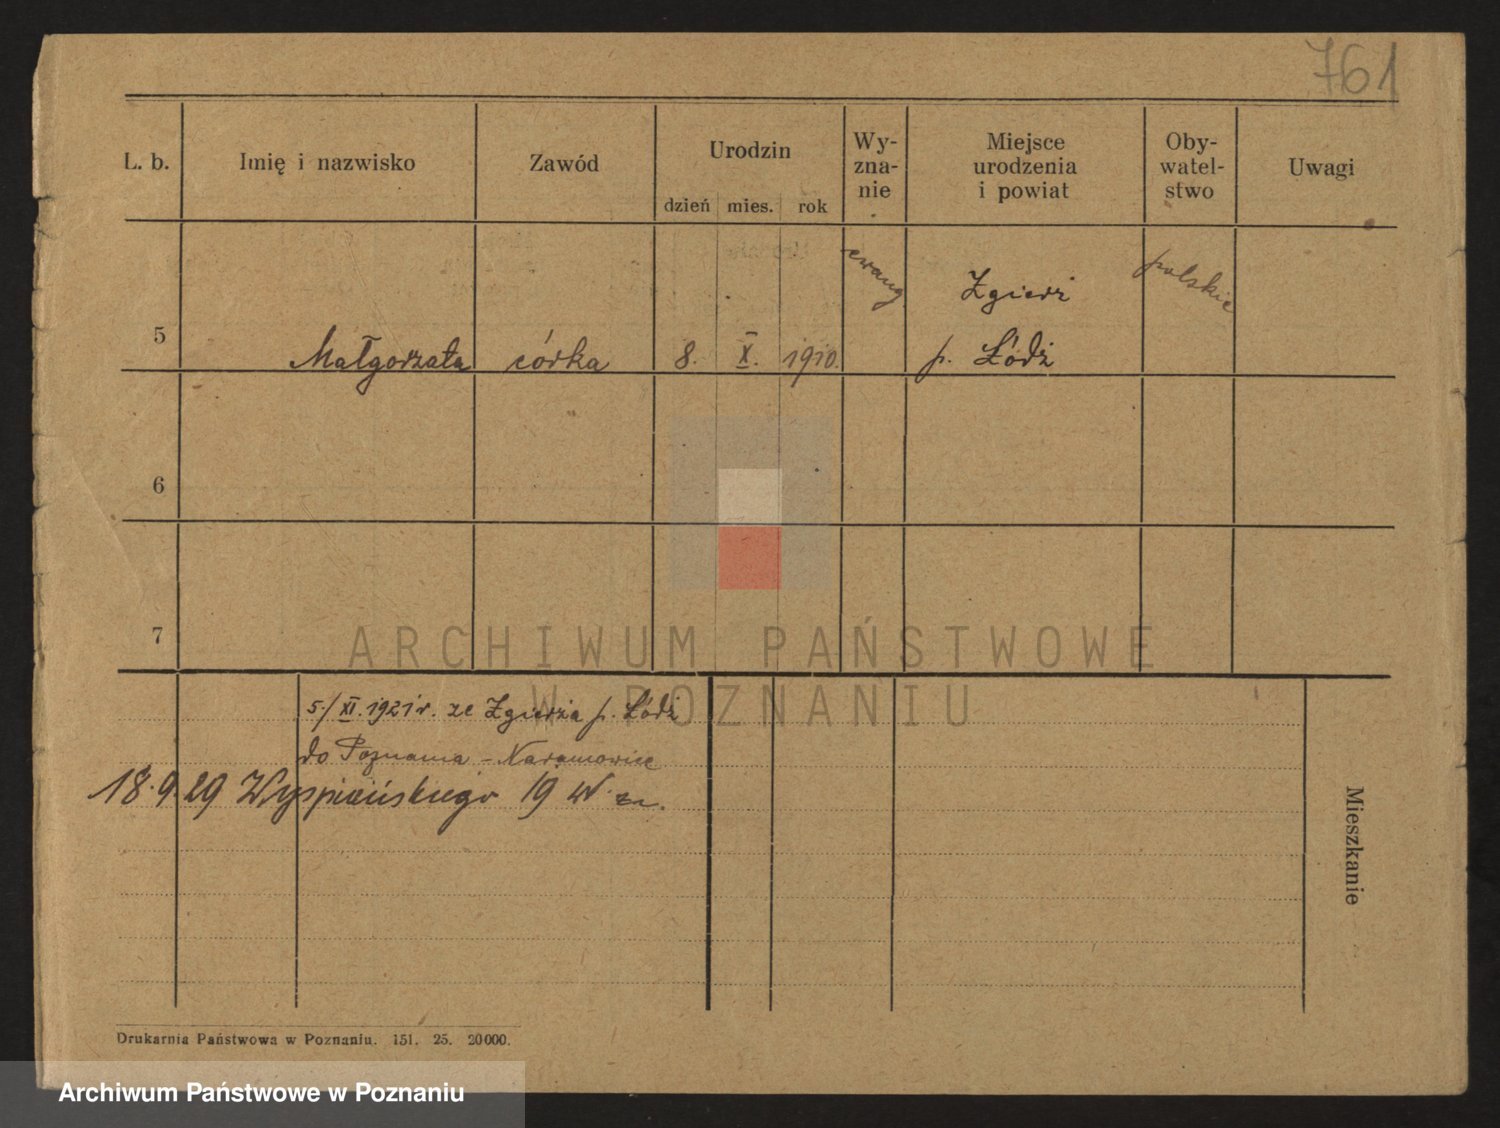 761
L. b. Imię i nazwisko Zawód Urodzin Wy-zna-nie Miejsce urodzenia i powiat Oby-watel-stwo Uwagi
dzień mies. rok
ewang Zgierz polskie
5 Małgorzata córka 8. X. 1910. p. Łódź
6
7
ARCHIWUM PAŃSTWOWE
W POZNANIU
5./XI. 1921 r. ze Zgierza p. Łódź
do Poznania - Naramowice
18.9.29 Wyspiańskiego 19
Mieszkanie
Drukarnia Państwowa w Poznaniu. 151. 25. 20000.
Archiwum Państwowe w Poznaniu